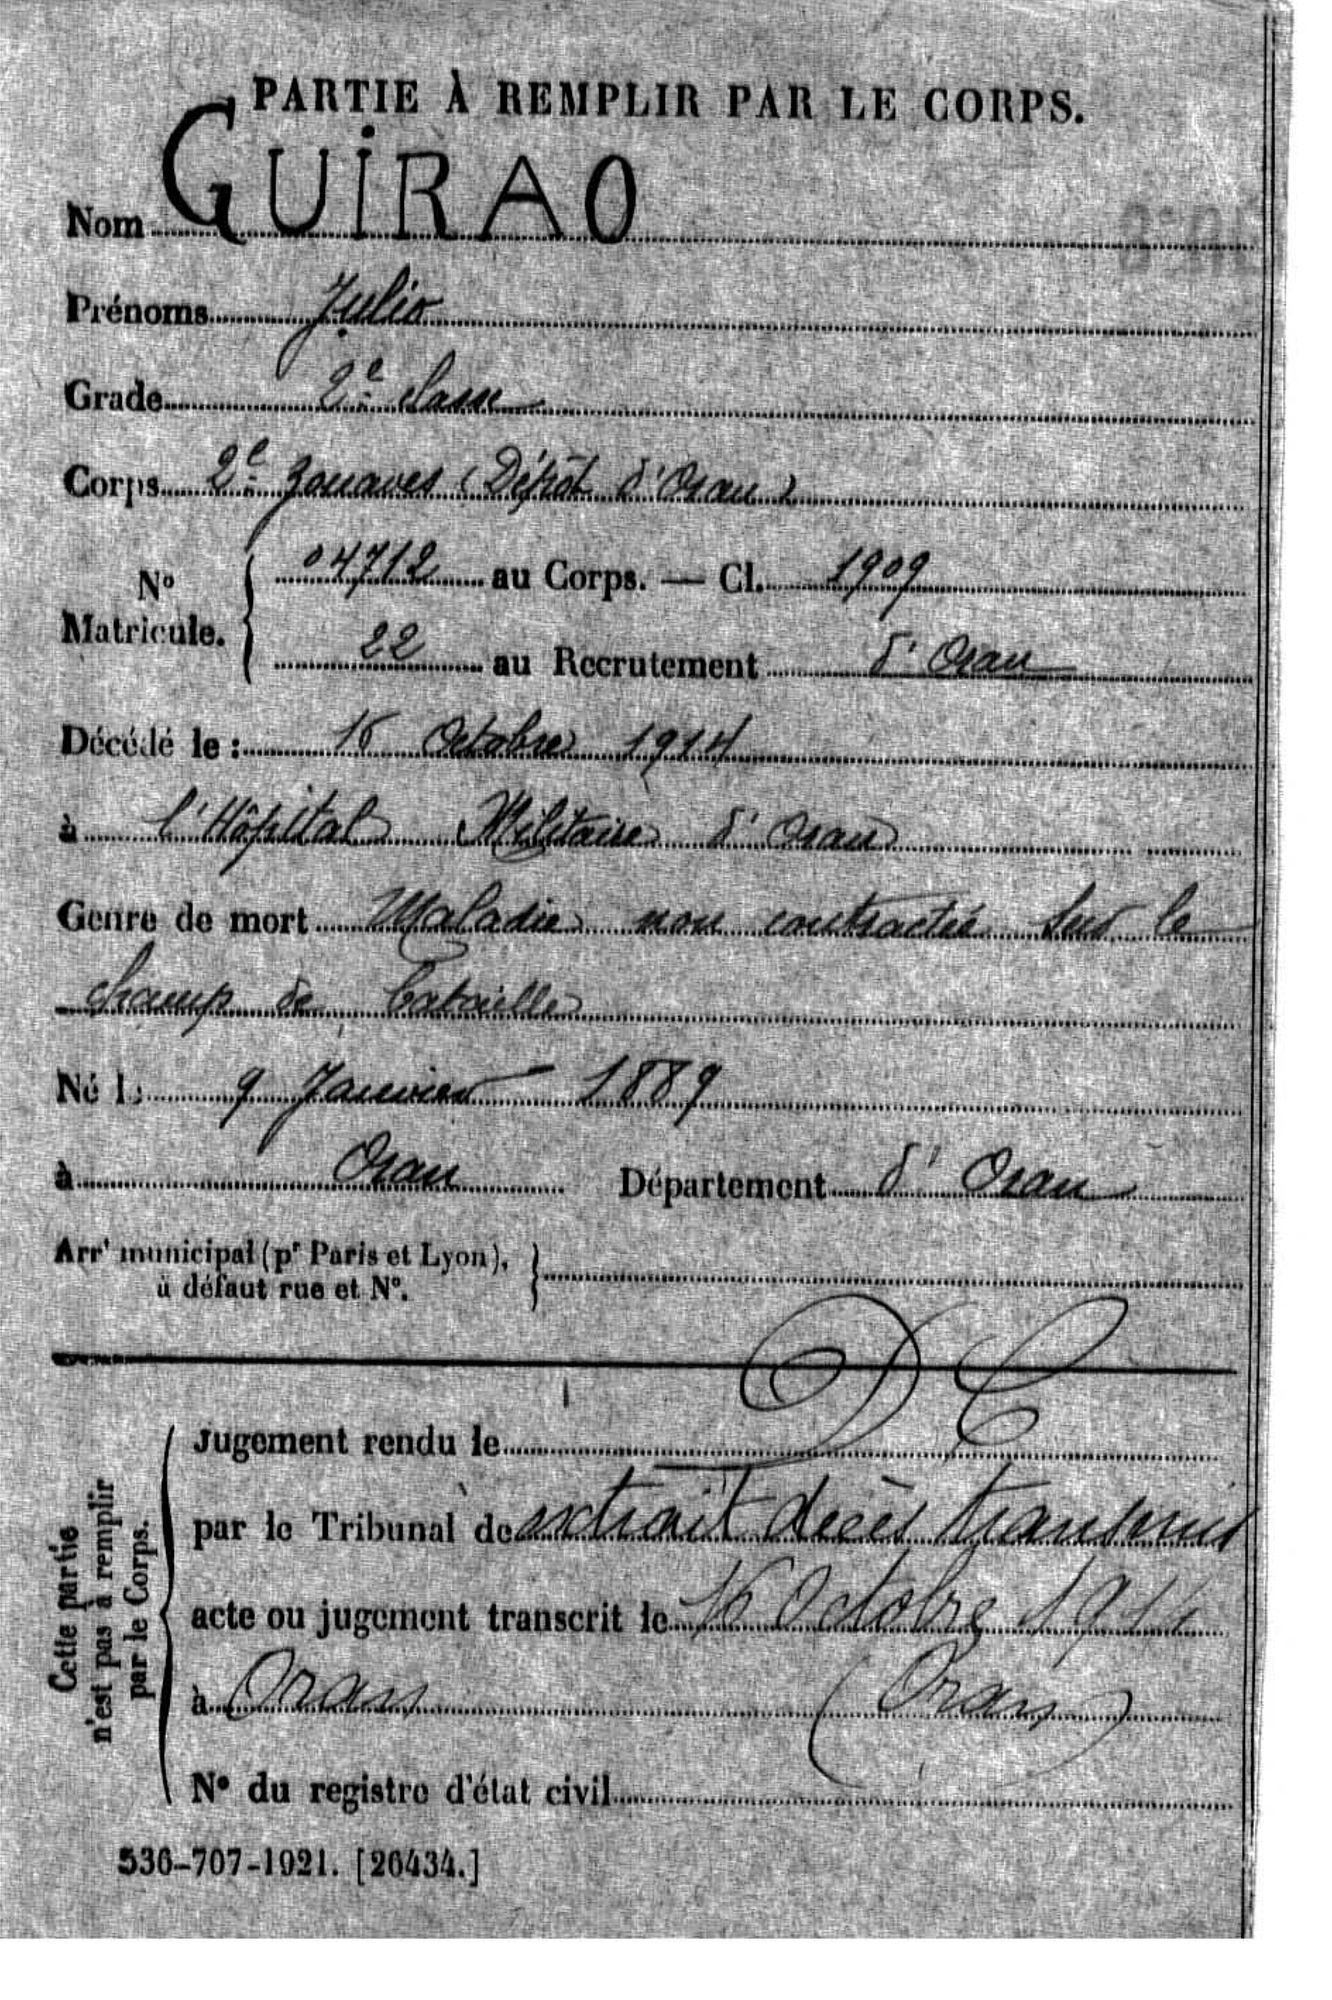 PARTIE À REMPLIR PAR LE CORPS.
Nom GUIRAO
Prénoms Julio
Grade 2e classe
Corps 2e Zouaves (Dépôt d'Oran)
N° Matricule. 04712 au Corps. — Cl. 1909
22 au Recrutement d'Oran
Décédé le : 16 Octobre 1914
à l'Hôpital Militaire d'Oran
Genre de mort Maladie non contractée sur le
champ de bataille
Né le 9 Janvier 1889
à Oran Département d'Oran
Arrt municipal (pr Paris et Lyon),
à défaut rue et N°.
DC
Cette partie
n'est pas à remplir
par le Corps.
Jugement rendu le
par le Tribunal de extrait decès transmis
acte ou jugement transcrit le 16 Octobre 1914
à Oran (Oran)
N° du registre d'état civil
536-707-1921. [26434.]